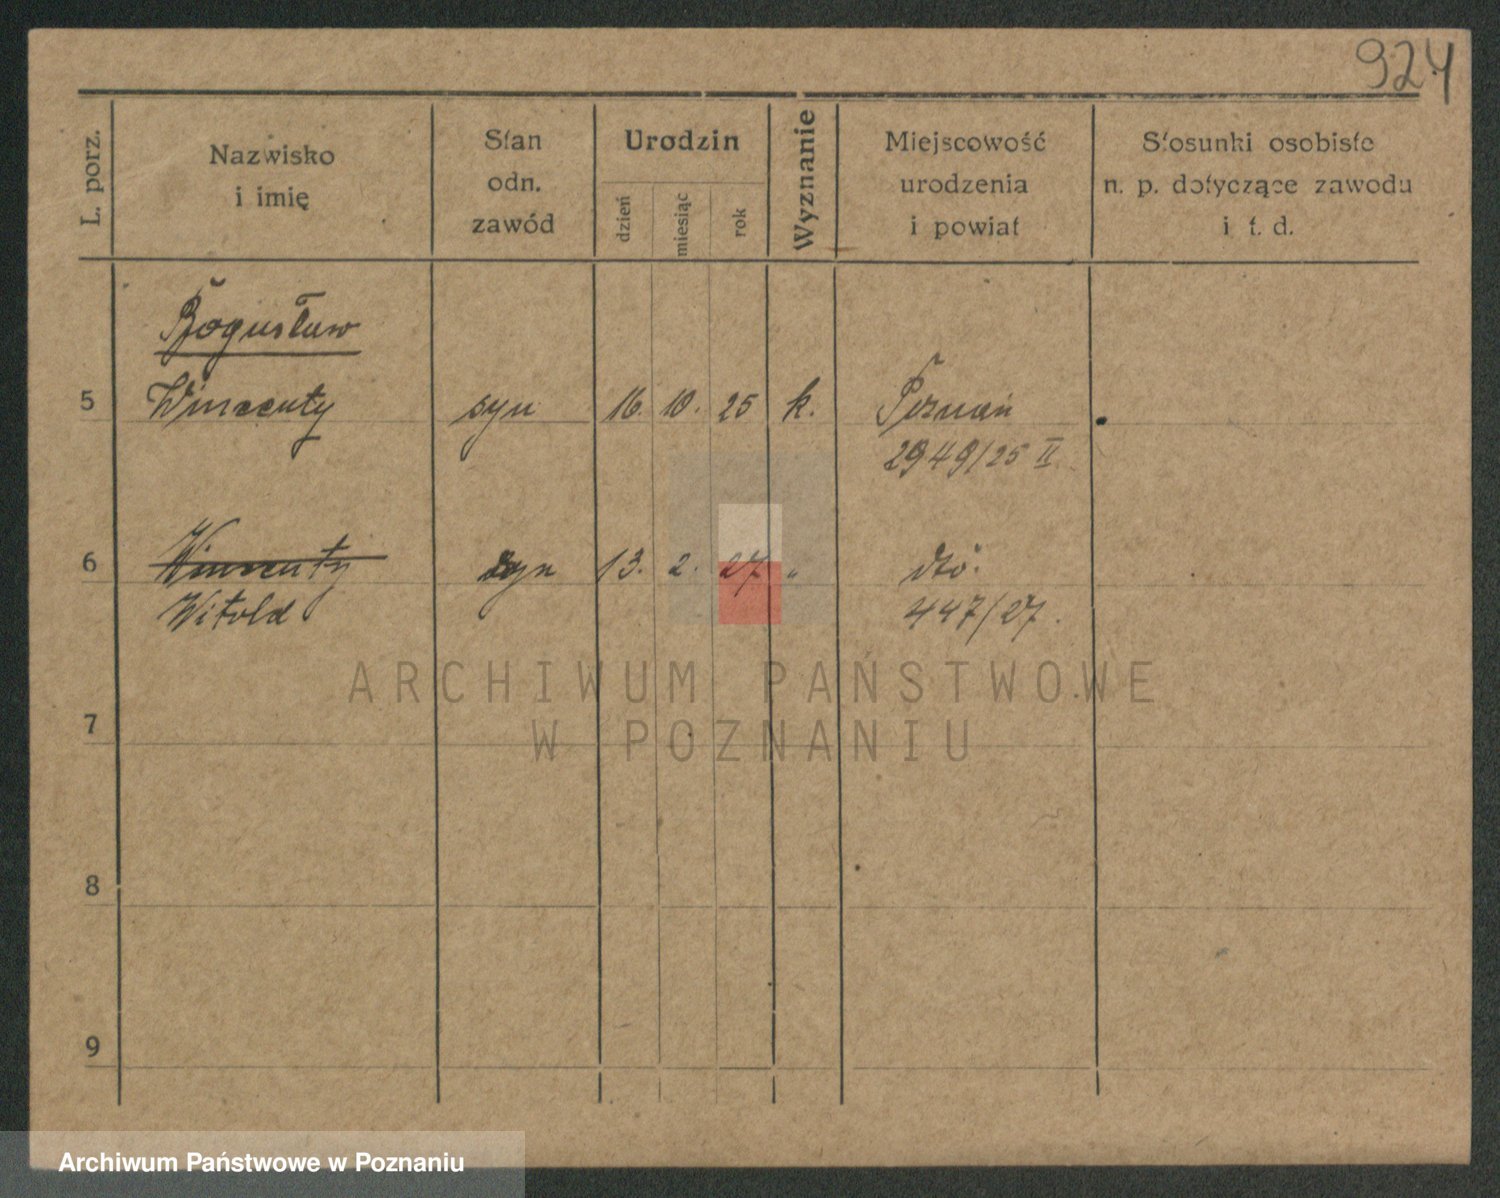 924
L. porz.
Nazwisko
i imię
Stan
odn.
zawód
Urodzin
dzień
miesiąc
rok
Wyznanie
Miejscowość
urodzenia
i powiat
Stosunki osobiste
n. p. dotyczące zawodu
i t. d.
Bogusław
5 Wincenty syn 16. 10. 25 k. Poznań
2949/25 II
6 Wincenty syn 13. 2. 27 „ dto.
Witold 447/27.
ARCHIWUM PAŃSTWOWE
W POZNANIU
7
8
9
Archiwum Państwowe w Poznaniu